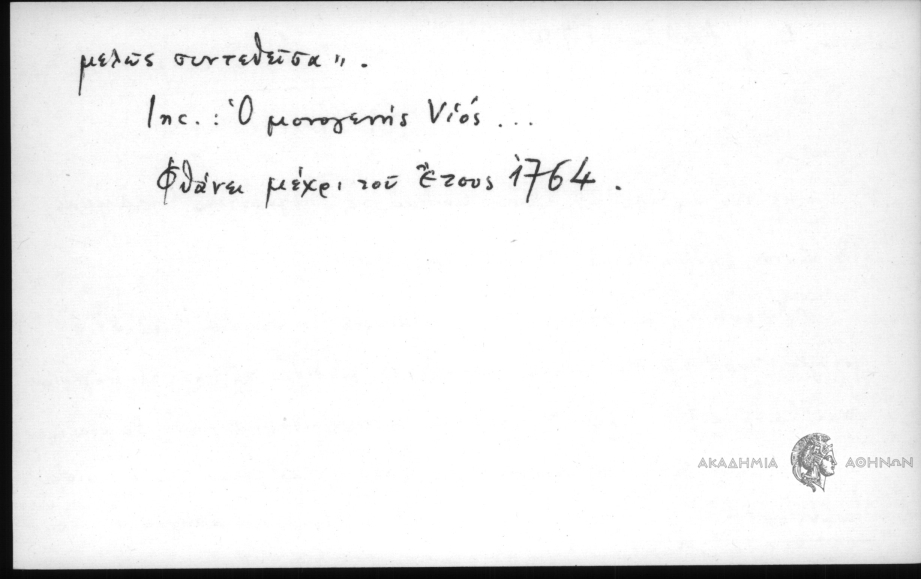 μελῶς συντεθεῖσα".
Inc.: Ὁ μονογενής Υἱός ...
Φθάνει μέχρι τοῦ ἔτους 1764.
ΑΚΑΔΗΜΙΑ ΑΘΗΝΩΝ